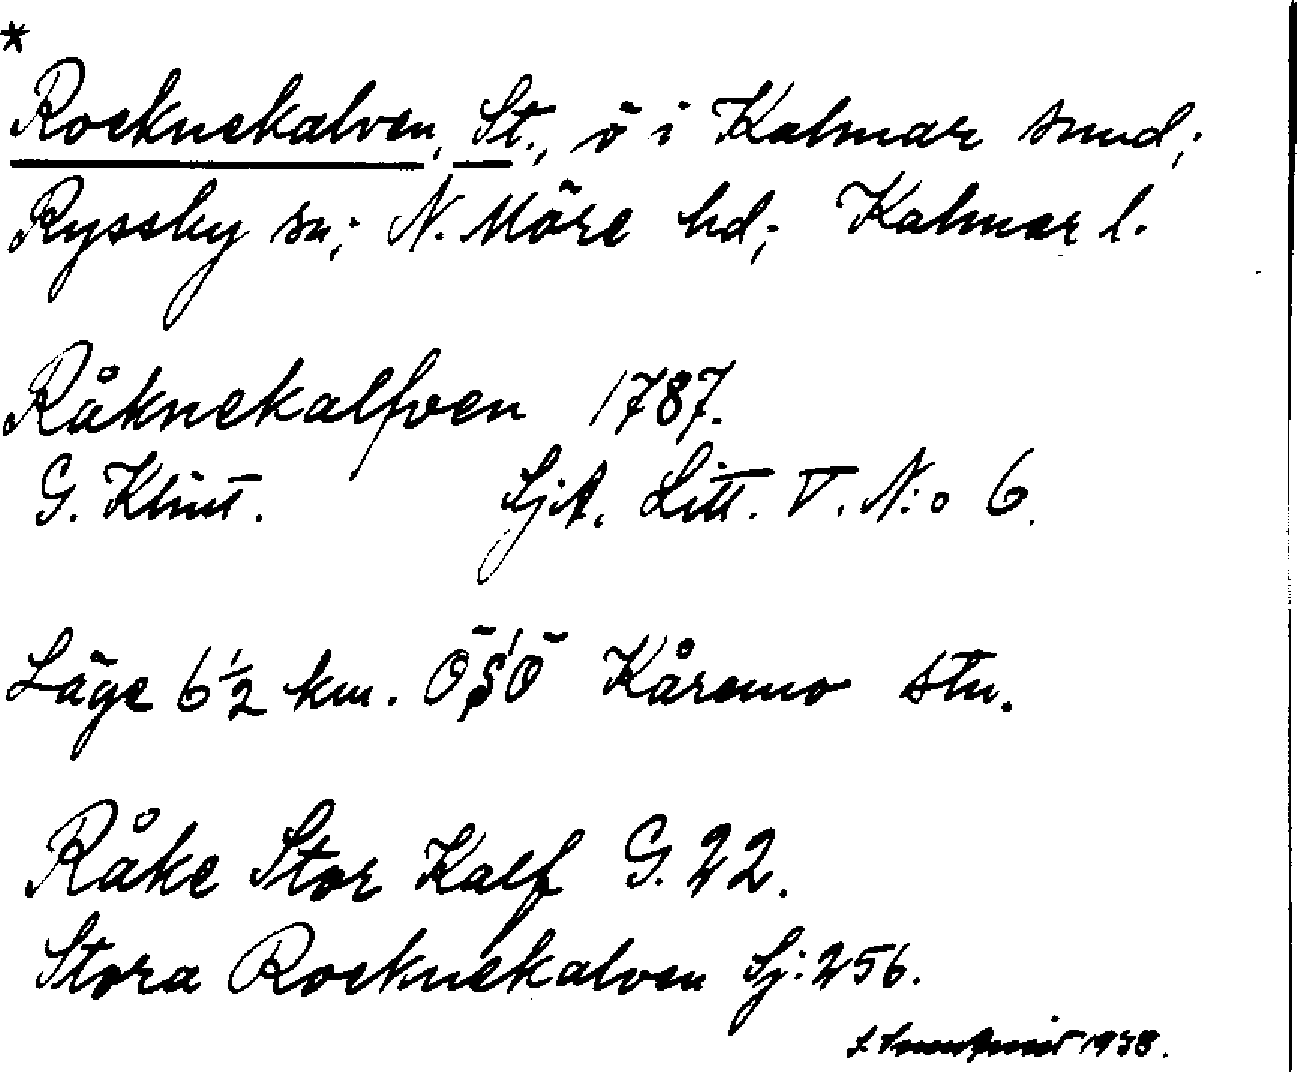 *
Rocknekalven, St., ö i Kalmar sund;
Ryssby sn; N. Möre hd; Kalmar l.
Råknekalfven 1787.
G. Klint. SjA. Litt. V. N:o 6.
Läge 6 1/2 km. ÖSÖ Kåremo stn.
Råke Stor Kalf G. 22.
Stora Rocknekalven Sj: 256.
1938.